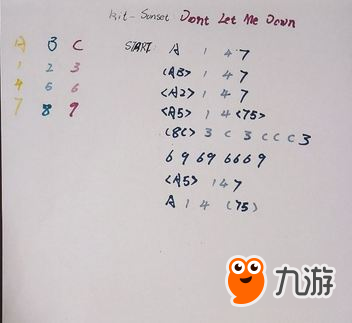 kit - Sunset Dont Let Me Down
A B C
1 2 3
4 5 6
7 8 9
START: A 1 4 7
<A3> 1 4 7
<A2> 1 4 7
<A5> 1 4 <75>
(8C> 3 C 3 C C C 3
6 9 6 9 6 6 6 9
<A5> 1 4 7
A 1 4 (75)
九游